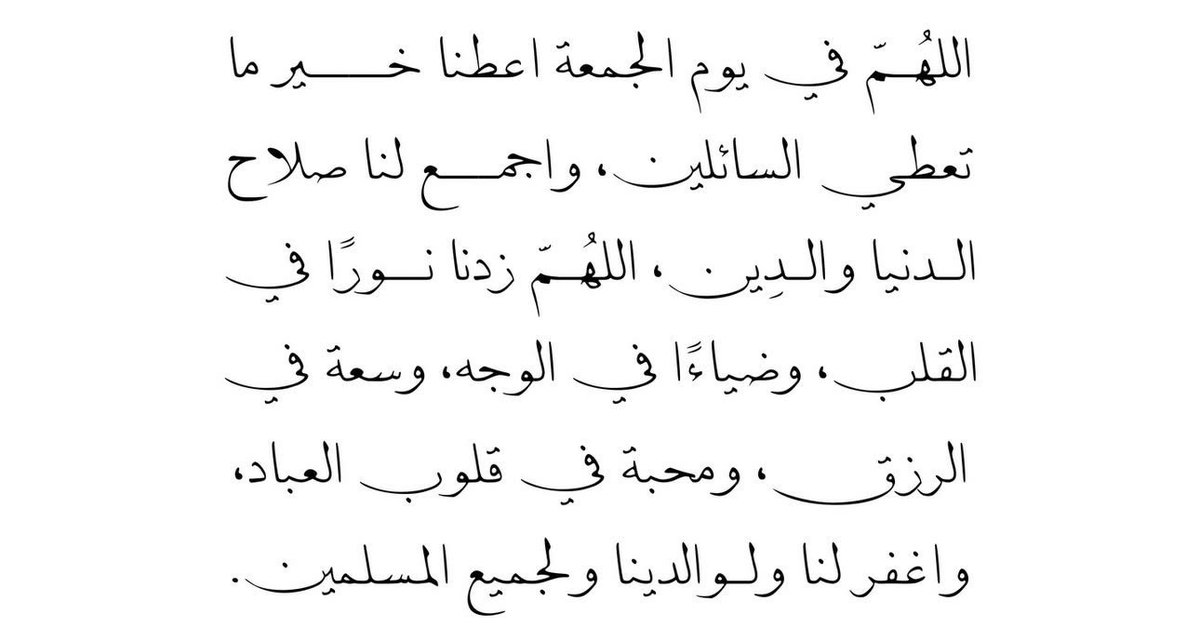 اللهُمّ في يوم الجمعة اعطنا خير ما
تعطي السائلين، واجمع لنا صلاح
الدنيا والدِين، اللهُمّ زدنا نورًا في
القلب، وضياءًا في الوجه، وسعة في
الرزق، ومحبة في قلوب العباد،
واغفر لنا ولوالدينا ولجميع المسلمين.